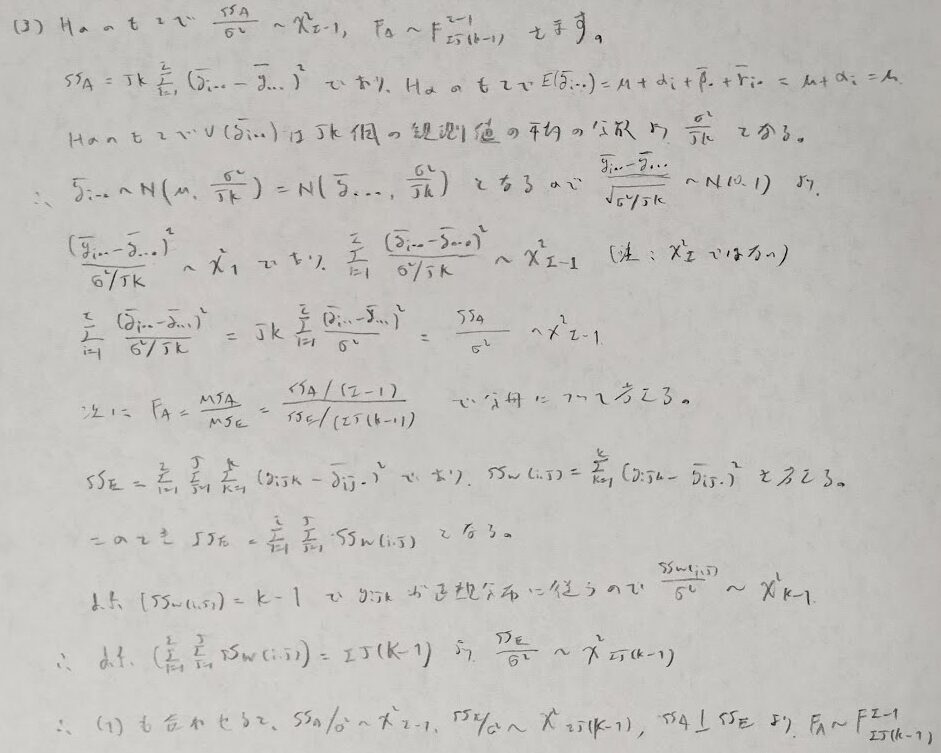 (3) Hα のもとで $\frac{SS_A}{σ^2} \sim χ^2_{I-1}$, $F_A \sim F^{I-1}_{IJ(K-1)}$ を示す。
$SS_A = JK \sum_{i=1}^{I} (\bar{y}_{i..} - \bar{y}_{...})^2$ であり、Hα のもとで $E(\bar{y}_{i..}) = μ + α_i + \bar{β}_{.} + \bar{γ}_{i.} = μ + α_i = μ$
Hα のもとで $V(\bar{y}_{i..})$ は JK 個の観測値の平均の分散より $\frac{σ^2}{JK}$ となる。
∴ $\bar{y}_{i..} \sim N(μ, \frac{σ^2}{JK}) = N(\bar{y}_{...}, \frac{σ^2}{JK})$ となるので $\frac{\bar{y}_{i..} - \bar{y}_{...}}{\sqrt{σ^2/JK}} \sim N(0,1)$ より、
$\frac{(\bar{y}_{i..} - \bar{y}_{...})^2}{σ^2/JK} \sim χ^2_1$ であり、$\sum_{i=1}^{I} \frac{(\bar{y}_{i..} - \bar{y}_{...})^2}{σ^2/JK} \sim χ^2_{I-1}$ (注 : $χ^2_I$ ではない)
$\sum_{i=1}^{I} \frac{(\bar{y}_{i..} - \bar{y}_{...})^2}{σ^2/JK} = JK \sum_{i=1}^{I} \frac{(\bar{y}_{i..} - \bar{y}_{...})^2}{σ^2} = \frac{SS_A}{σ^2} \sim χ^2_{I-1}$
次に $F_A = \frac{MS_A}{MS_E} = \frac{SS_A/(I-1)}{SS_E/(IJ(K-1))}$ で分母について考える。
$SS_E = \sum_{i=1}^{I} \sum_{j=1}^{J} \sum_{k=1}^{K} (y_{ijk} - \bar{y}_{ij.})^2$ であり、$SS_{W(i,j)} = \sum_{k=1}^{K} (y_{ijk} - \bar{y}_{ij.})^2$ を考える。
このとき $SS_E = \sum_{i=1}^{I} \sum_{j=1}^{J} SS_{W(i,j)}$ となる。
d.f. $(SS_{W(i,j)}) = K-1$ で $y_{ijk}$ が正規分布に従うので $\frac{SS_{W(i,j)}}{σ^2} \sim χ^2_{K-1}$
∴ d.f. $(\sum_{i=1}^{I} \sum_{j=1}^{J} SS_{W(i,j)}) = IJ(K-1)$ より $\frac{SS_E}{σ^2} \sim χ^2_{IJ(K-1)}$
∴ (1) も合わせると、$SS_A/σ^2 \sim χ^2_{I-1}$, $SS_E/σ^2 \sim χ^2_{IJ(K-1)}$, $SS_A ⊥ SS_E$ より $F_A \sim F^{I-1}_{IJ(K-1)}$